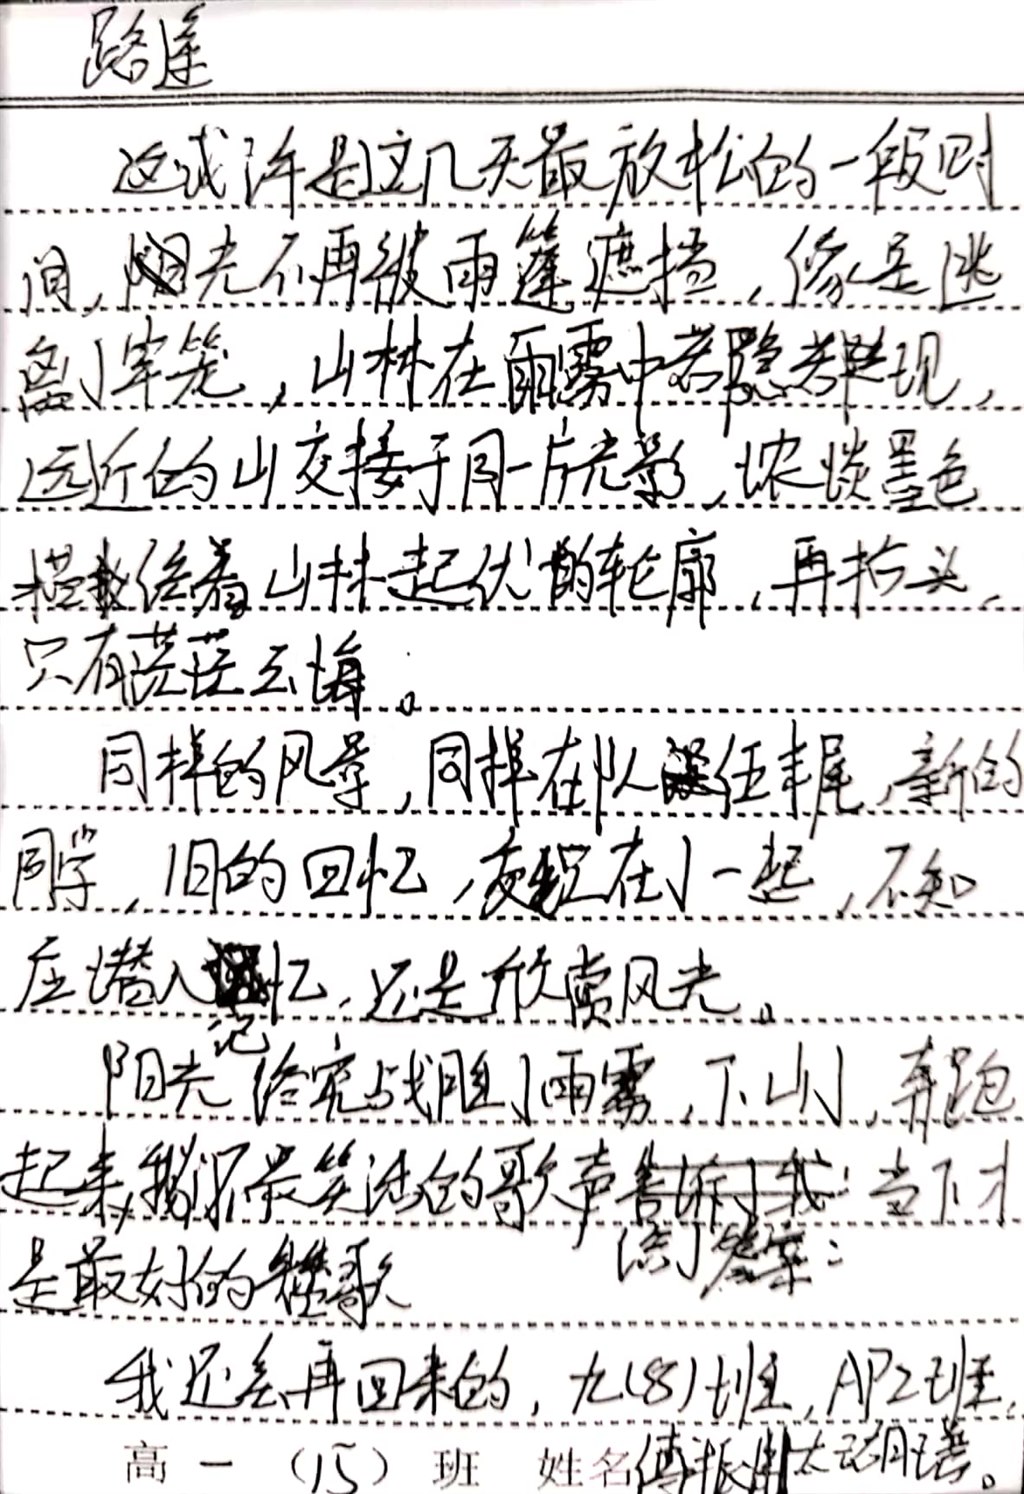 路遥
这或许是这几天最放松的一段时
间，阳光不再被雨篷遮挡，像是逃
离了牢笼，山林在雨雾中若隐若现，
远近的山交接于同一片光影，浓淡墨色
描绘着山林起伏的轮廓，再抬头，
只有茫茫云海。
同样的风景，同样在队伍末尾，新的
同学，旧的回忆，交织在了一起，不知
应潜入记忆，还是欣赏风光。
阳光终究战胜了雨雾，下山了，奔跑
起来，欢声笑语的歌声给了答案：当下才
是最好的赞歌
我还会再回来的，九（8）班，AP2班，
高一（15）班 姓名